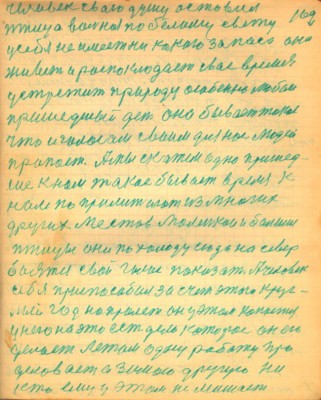 человек свою душу оставил 162
птица волной по белому свету
у себя не имеет ни какого запаса она
живет и распокладает свае время
устретит природу особенно любой
пришедший ден она бывает такое
что и голосам своим для нас людей
пропоет А мы скажем одно пришед-
ше к нам такое бывает время к
нам по прилит из многих
других Местов Малинкой и большие
птицы они по холоду сюда на север
свой показат А человек
себя приспособил за счет этого круг-
лый год на он у этом копается
у него на это ест дело которое он его
делает Летом одну работу про
делывает а Зимою другую ни
кто ему у этом не мешает